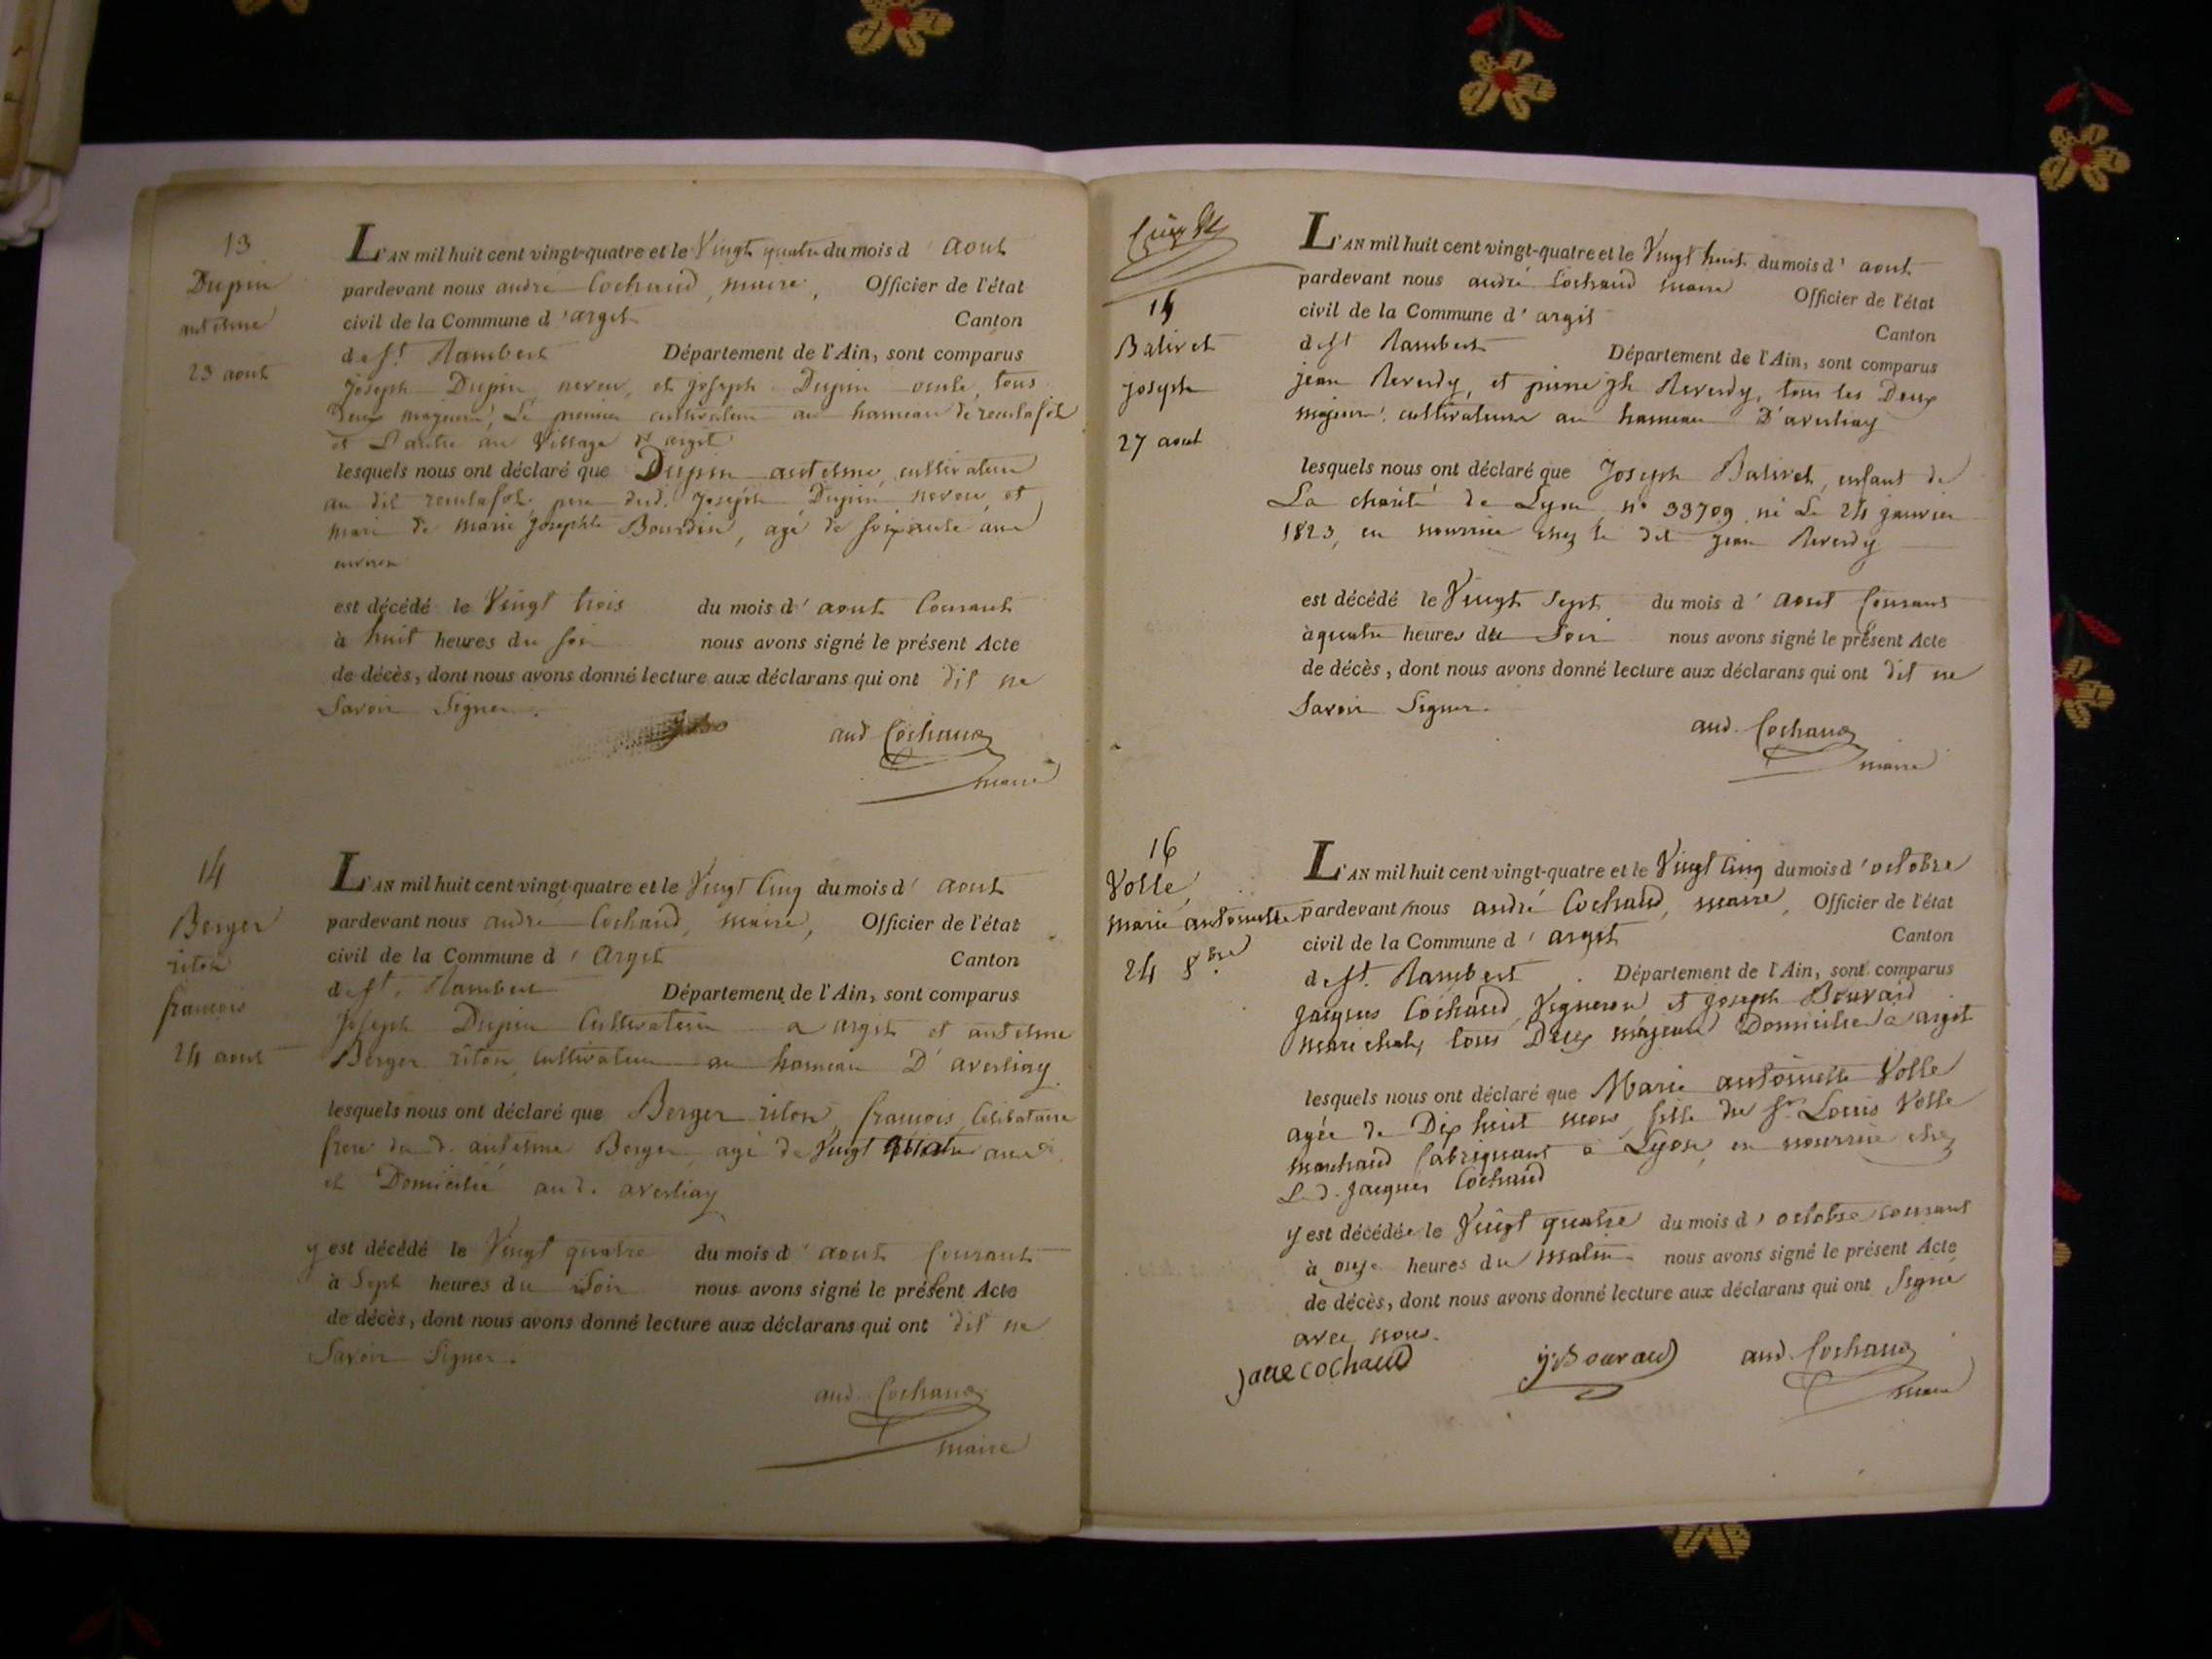 13
Dupin
antelme
23 aout
L'AN mil huit cent vingt-quatre et le Vingt quatre du mois d'aout
pardevant nous andré Cochaud, maire, Officier de l'état
civil de la Commune d'argit Canton
de St Rambert Département de l'Ain, sont comparus
Joseph Dupin neveu, et joseph Dupin oncle, tous
Deux majeurs, Le premier cultivateur au hameau de reculafol
et L'autre au Village d'argit
lesquels nous ont déclaré que Dupin antelme, cultivateur
au dit reculafol, pere dud. Joseph Dupin neveu, et
mari de marie Josephte Bourdin, agé de soixante ans
environ
est décédé le Vingt trois du mois d'aout Courant
à huit heures du soir nous avons signé le présent Acte
de décès, dont nous avons donné lecture aux déclarans qui ont dit ne
Savoir Signer.
and Cochaud
maire
14
Berger
riton
francois
24 aout
L'AN mil huit cent vingt-quatre et le Vingt Cinq du mois d'aout
pardevant nous andré Cochaud, maire, Officier de l'état
civil de la Commune d'Argit Canton
de St. Rambert Département de l'Ain, sont comparus
Joseph Dupin Cultivateur a argit et antelme
Berger riton Cultivateur au hameau D'averliay
lesquels nous ont déclaré que Berger riton, francois, Celibataire
frere du d. antelme Berger, agé de Vingt quatre ans
et Domicilié aud. averliay
y est décédé le Vingt quatre du mois d'aout Courant
à Sept heures du Soir nous avons signé le présent Acte
de décès, dont nous avons donné lecture aux déclarans qui ont dit ne
Savoir Signer.
and Cochaud
maire
15
Balivet
joseph
27 aout
L'AN mil huit cent vingt-quatre et le Vingt huit du mois d'aout
pardevant nous andré Cochaud maire Officier de l'état
civil de la Commune d'argit Canton
de St Rambert Département de l'Ain, sont comparus
jean Reverdy, et pierre jh Reverdy, tous les Deux
majeurs, cultivateurs au hameau D'averliay
lesquels nous ont déclaré que Joseph Balivet, enfant de
La charité de Lyon n° 33709 né Le 24 janvier
1823, en nourrice chez le dit jean Reverdy
est décédé le Vingt Sept du mois d'aout Courant
à quatre heures du Soir nous avons signé le présent Acte
de décès, dont nous avons donné lecture aux déclarans qui ont dit ne
Savoir Signer.
and. Cochaud
maire
16
Volle
marie antoinette
24 8bre
L'AN mil huit cent vingt-quatre et le Vingt Cinq du mois d'octobre
pardevant nous andré Cochaud, maire, Officier de l'état
civil de la Commune d'argit Canton
de St. Rambert Département de l'Ain, sont comparus
Jacques Cochaud, Vigneron et Joseph Bouvard
marechal, tous Deux majeurs Domiciliés a argit
lesquels nous ont déclaré que Marie antoinette Volle
agée de Dix huit mois, fille du Sr Louis Volle
marchand fabriquant à Lyon, en nourrice chez
Le d. Jacques Cochaud
y est décédée le Vingt quatre du mois d'octobre courant
à onze heures du matin nous avons signé le présent Acte
de décès, dont nous avons donné lecture aux déclarans qui ont Signé
avec nous.
Jaque cochaud j. Bouvard and. Cochaud
maire